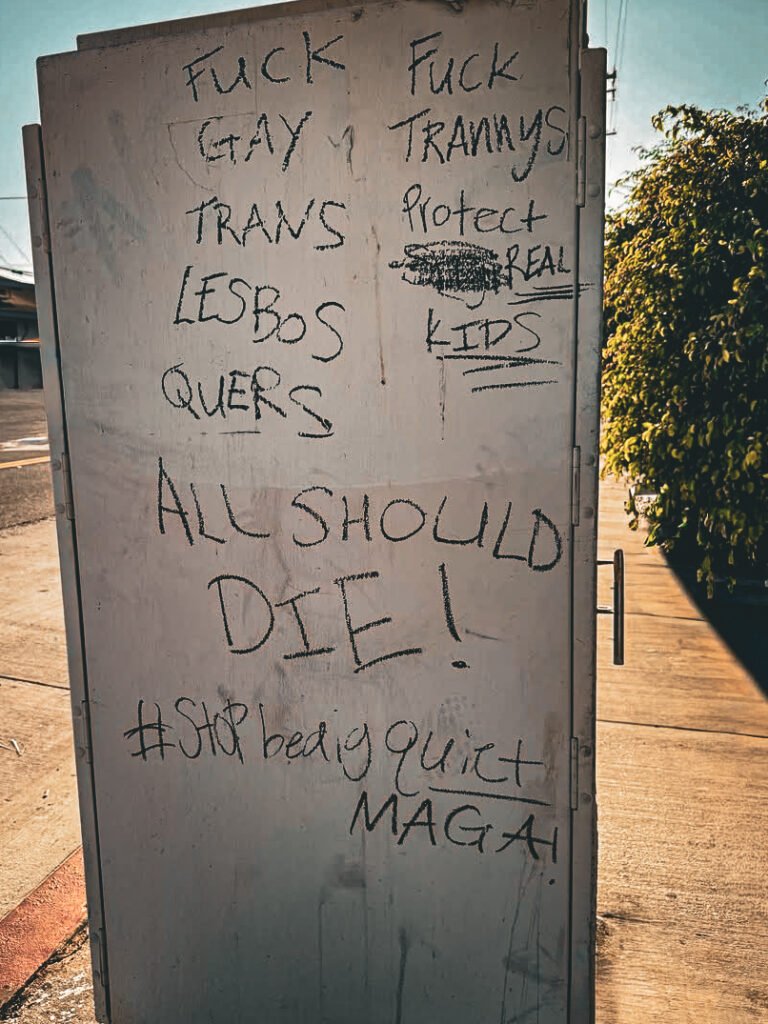 FUCK
GAY
TRANS
LESBOS
QUERS
FUCK
TRANNYS
Protect
REAL
KIDS
ALL SHOULD
DIE!
#Stop bedig quiet
MAGA!